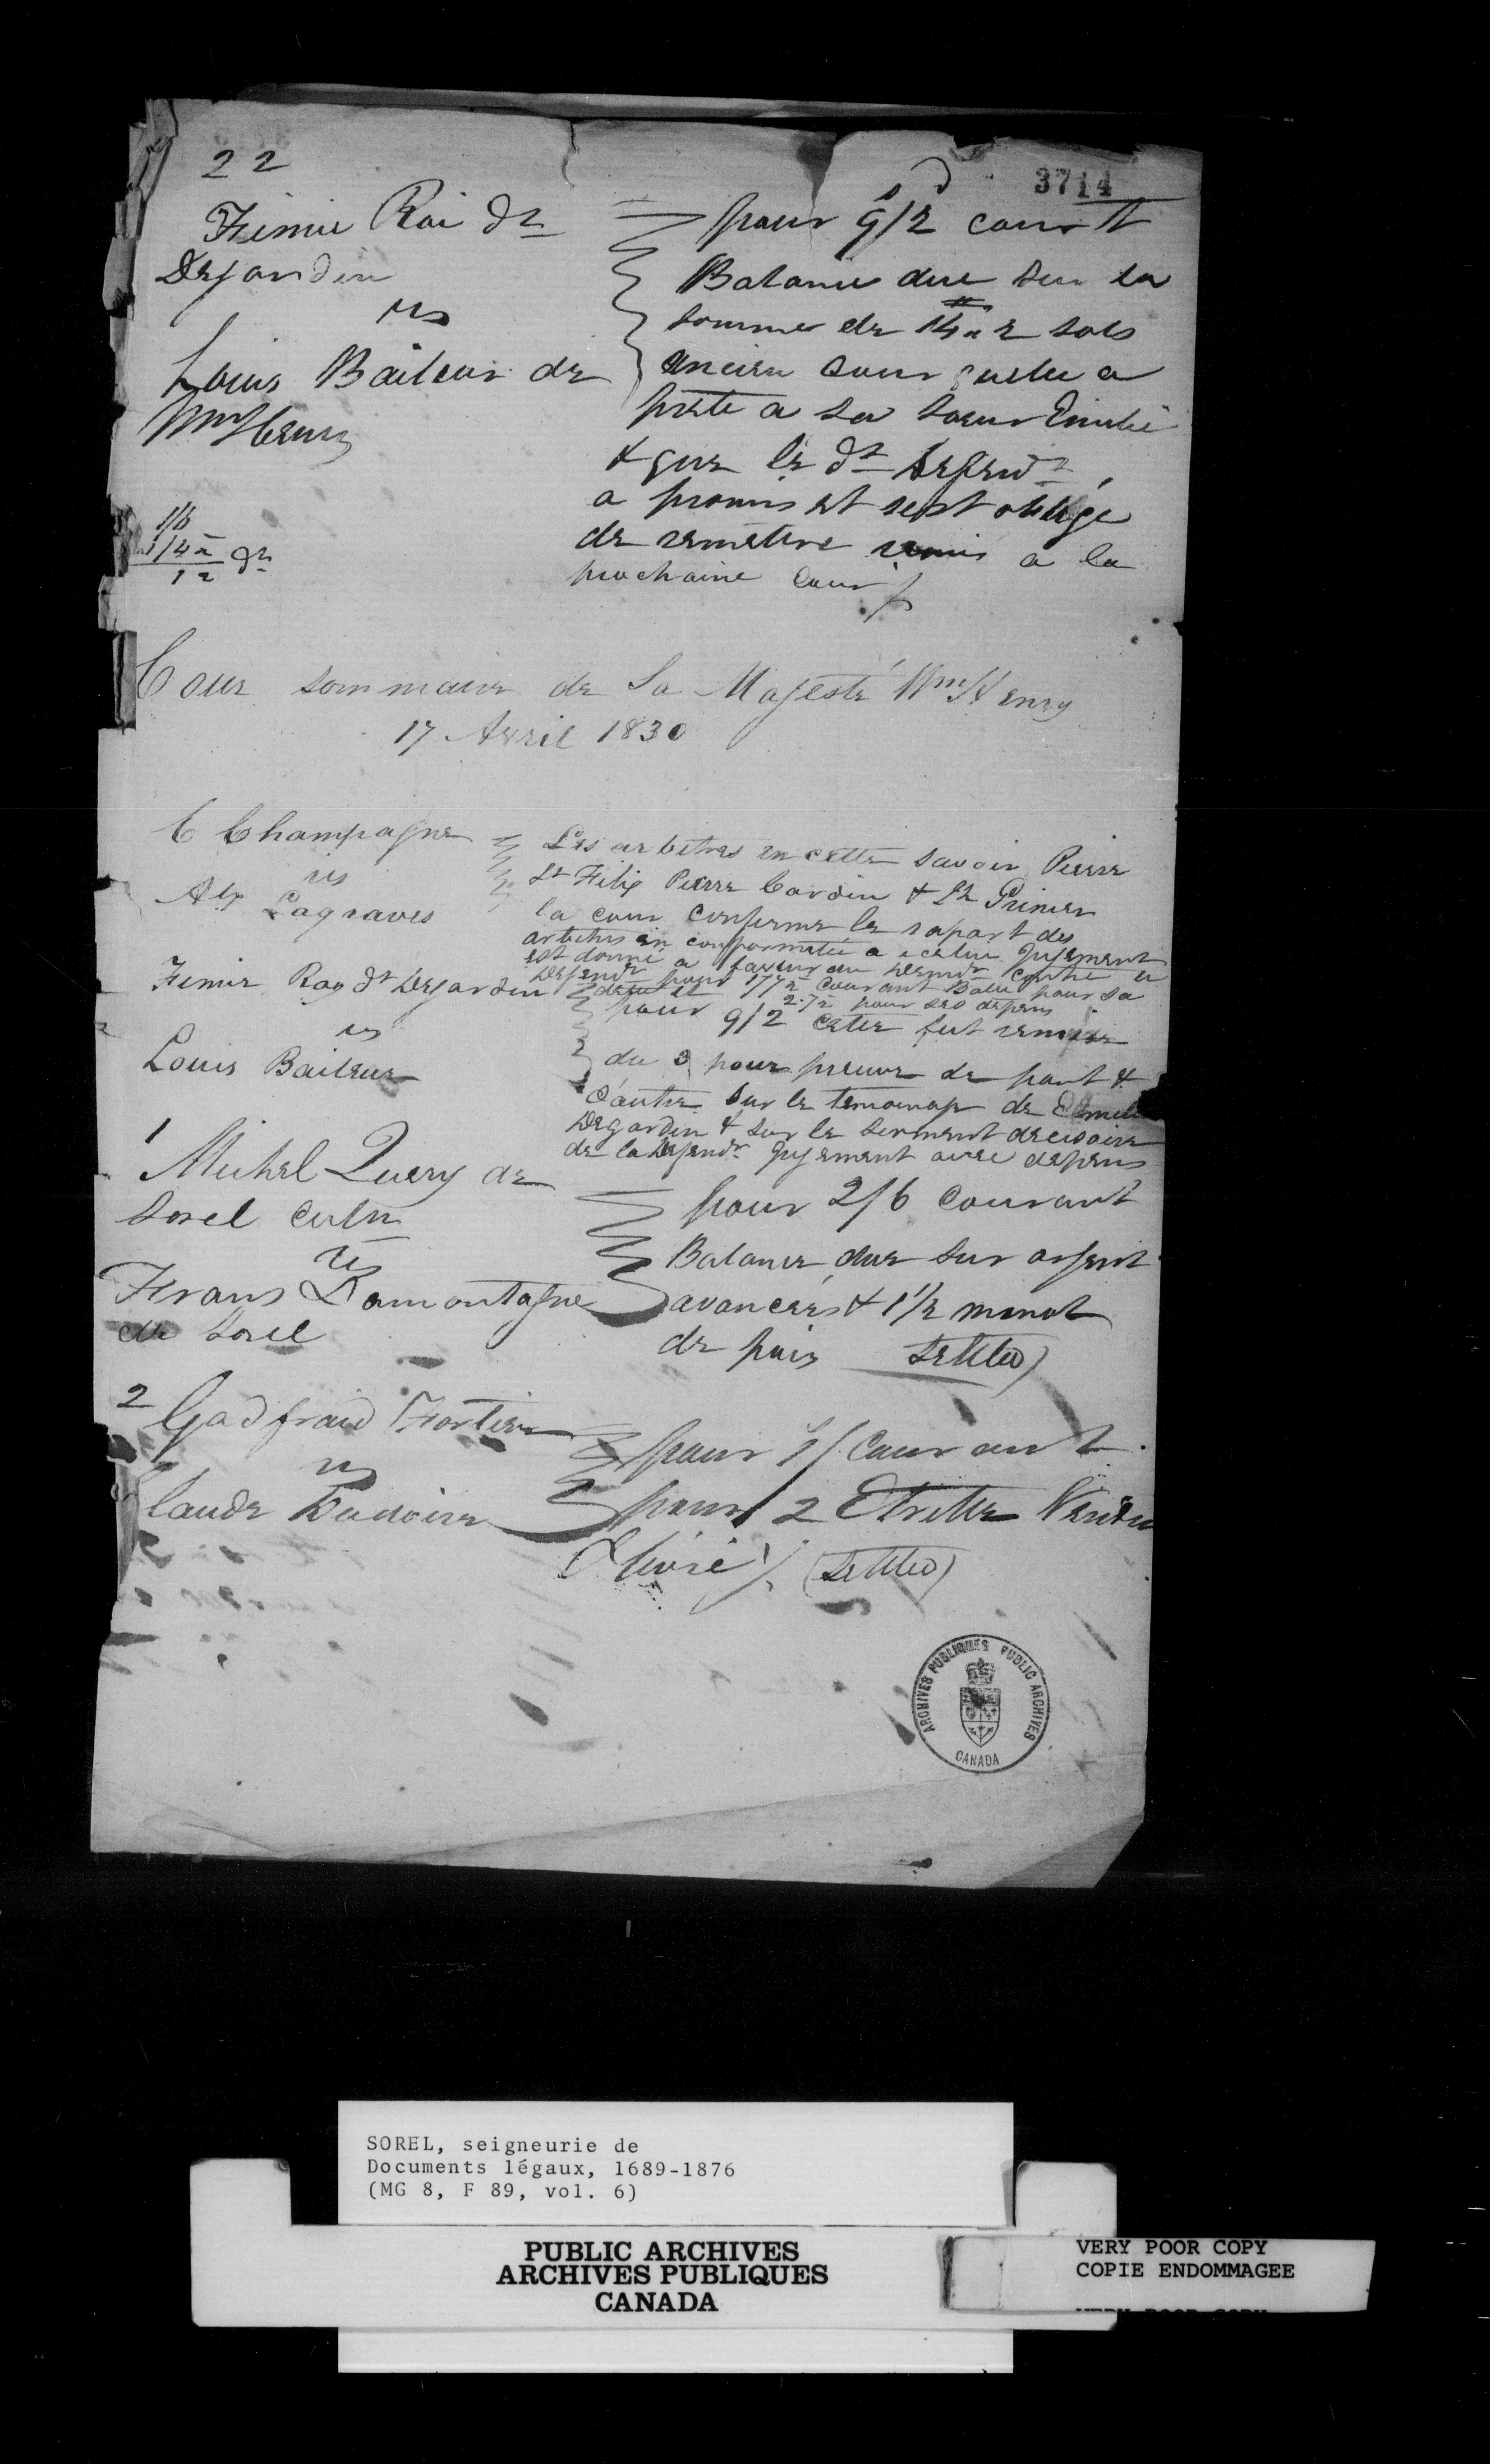 22
3714
Femie Roi dt
Desjardin
vs
Louis Baileur de
Wm Henry
1/6
1/4 d
pour 9/2 cour t
Balance due sur la
somme de 14 2 sols
ancien cour quelle a
prete a sa soeur Emelie
& que le dt Defendr
a promis et sest obligé
de remettre remis a la
prochaine Cour
Cour sommaire de Sa Majesté Wm Henry
17 Avril 1830
C Champagne
vs
Alx Lagraves
Les arbitres en cette savoir Pierre
St Felix Pierre Cardin &
la cour conferme le raport des
arbitres en conformité a icelui Jugement
est donné a faveur du Demdr contre le
Defendr pour 1/7 courant Balce pour sa
2.7 pour ses depens
Femie Roy dt Dejardin
vs
Louis Baileur
pour 9/2 cette fut remise
du 3 pour preuve de part &
d'autre sur le temoinage de Emelie
Degardin & sur le serment decisoire
de la Defendr Jugement avec depens
1
Michel Query de
Sorel Cultr
vs
Frans Lamontagne
de Sorel
pour 2/6 Courant
Balance due sur argent
avancées & 1 1/2 minot
de pois Settled
2
Godfroid Fortier
vs
Claude
pour 5/ Courant
pour 2 Etrille Vendu
& livré (Settled)
ARCHIVES PUBLIQUES PUBLIC ARCHIVES
CANADA
SOREL, seigneurie de
Documents légaux, 1689-1876
(MG 8, F 89, vol. 6)
PUBLIC ARCHIVES
ARCHIVES PUBLIQUES
CANADA
VERY POOR COPY
COPIE ENDOMMAGEE
VERY POOR COPY